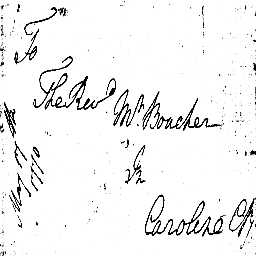 To
The Revd Mr Boucher
In
Caroline Cty
May 1770